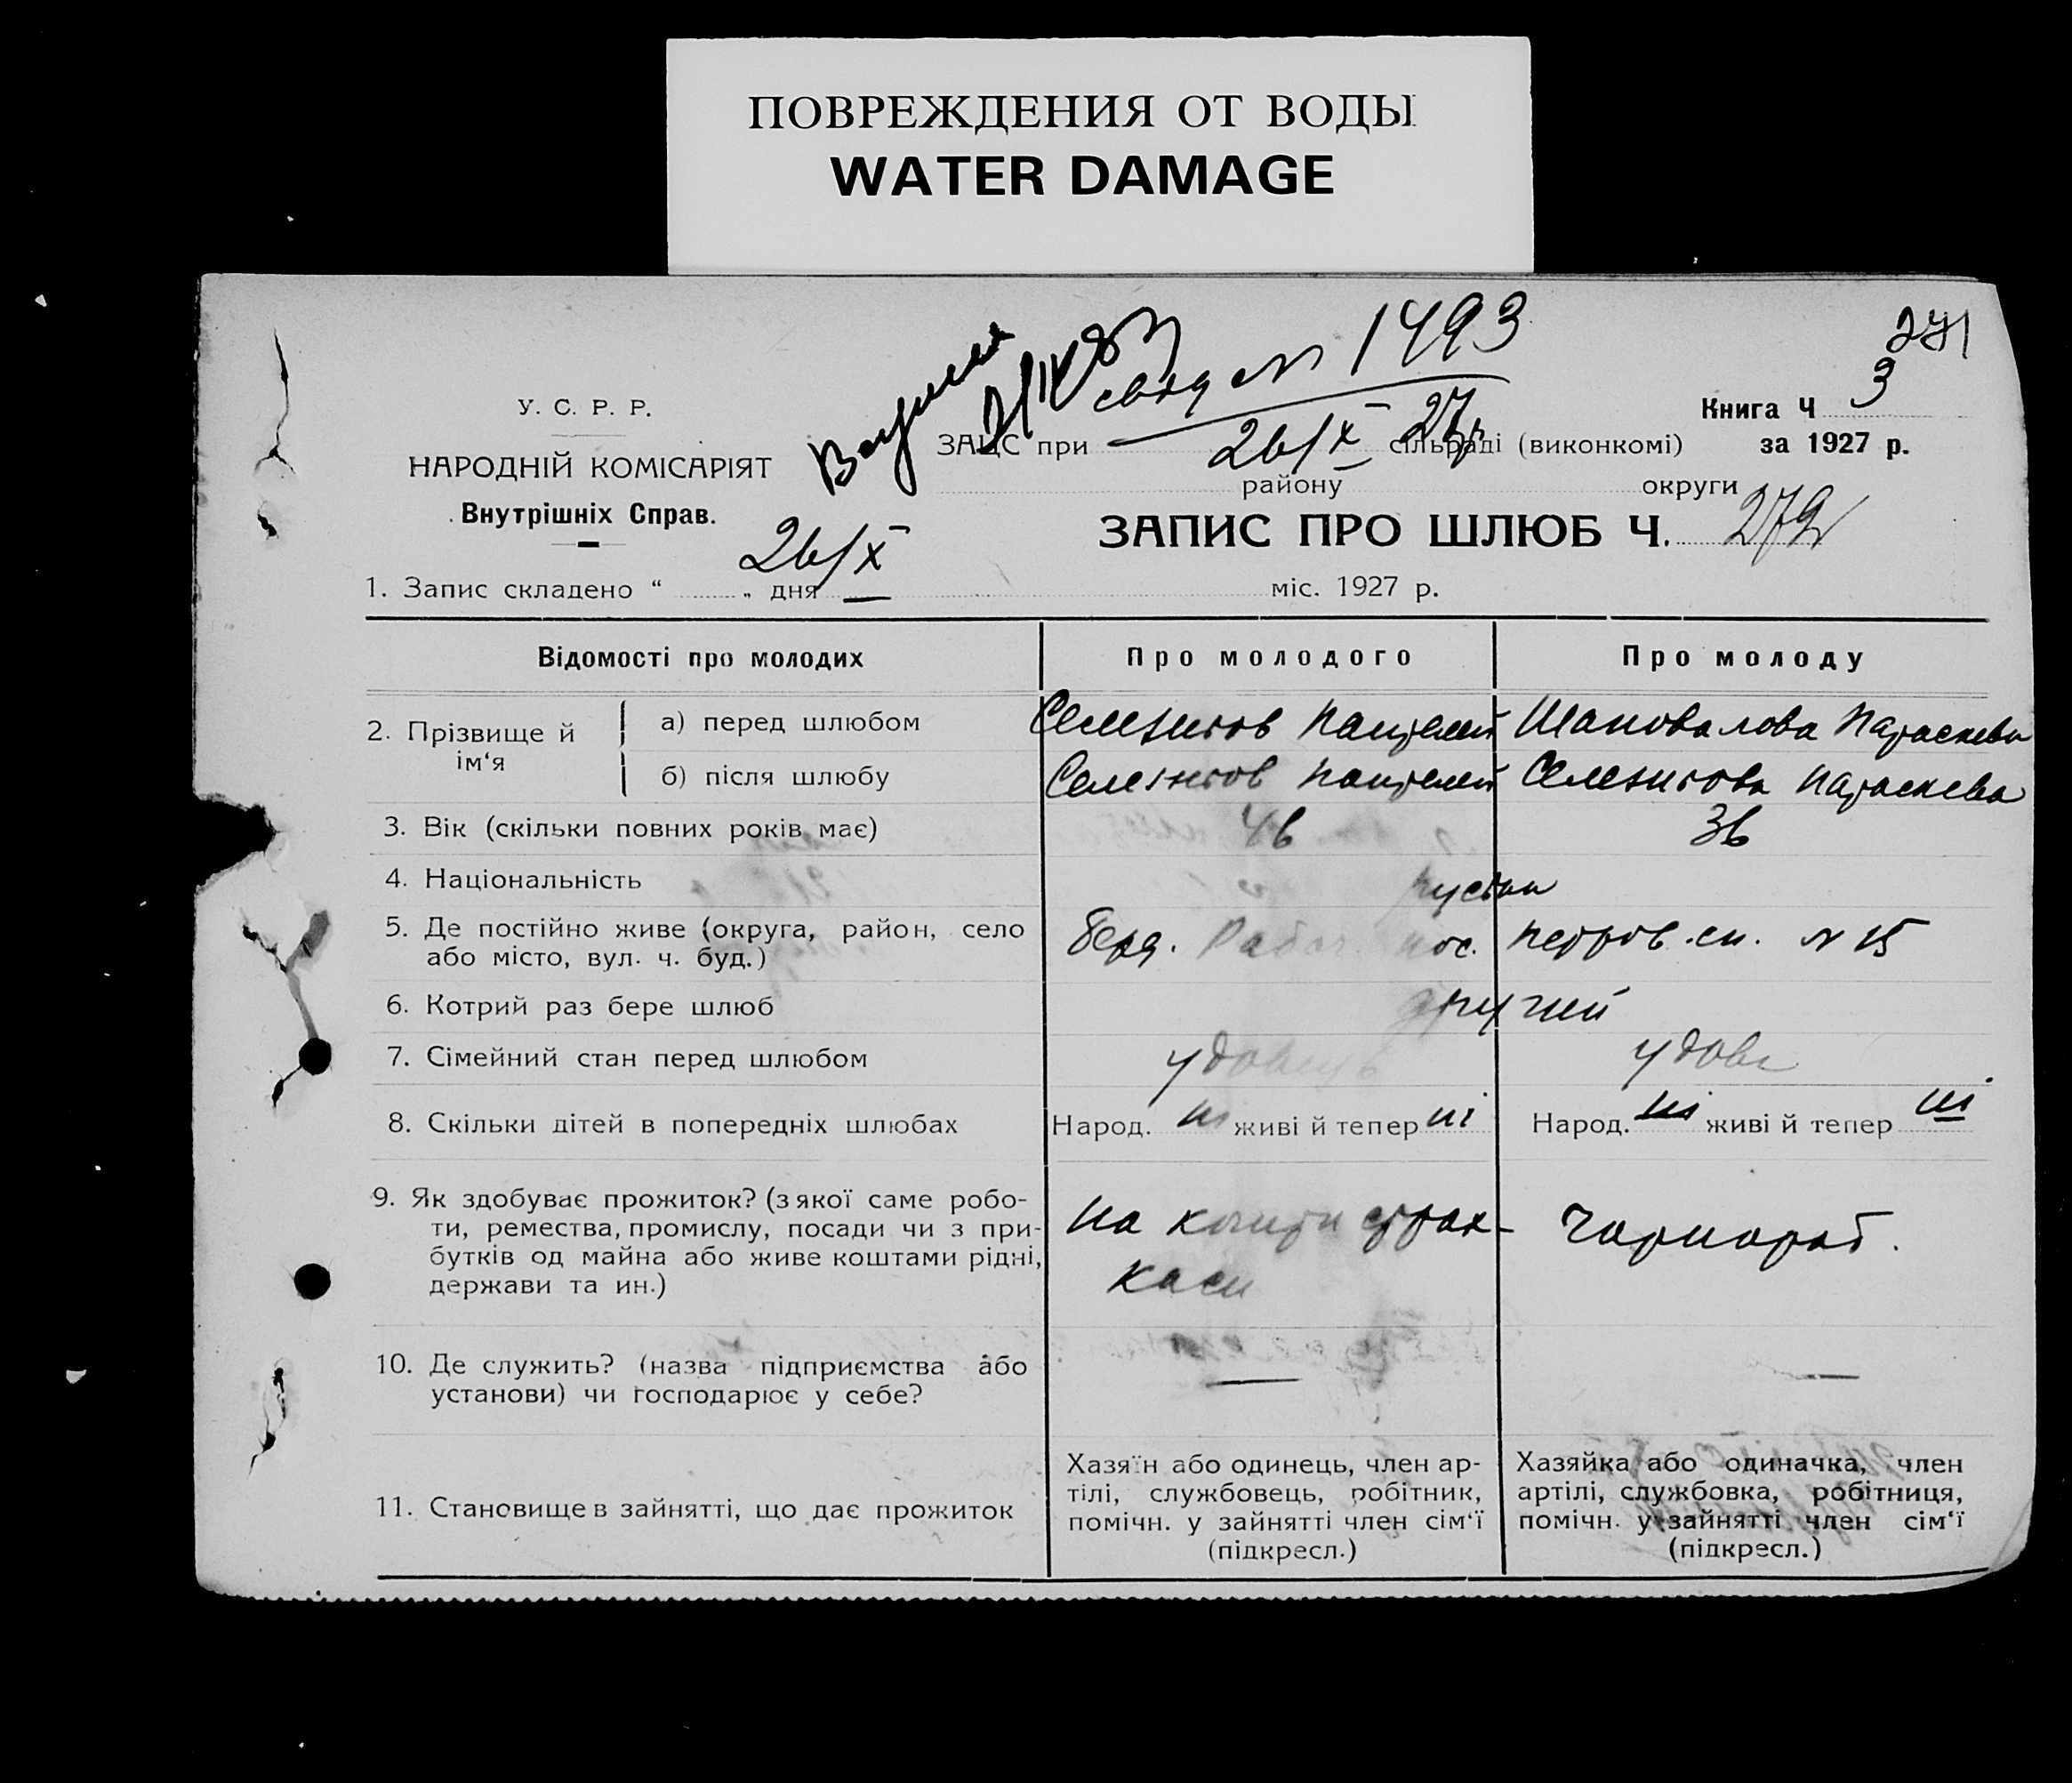 ПОВРЕЖДЕНИЯ ОТ ВОДЫ
WATER DAMAGE
271
У. С. Р. Р.
НАРОДНІЙ КОМІСАРІЯТ
Внутрішніх Справ.
№ 1493
26/X 27р
ЗАЦС при сільраді (виконкомі)
району округи
Книга Ч 3
за 1927 р.
ЗАПИС ПРО ШЛЮБ Ч. 279
1. Запис складено “ „ дня 26/X міс. 1927 р.
Відомості про молодих Про молодого Про молоду
2. Прізвище й ім‘я
а) перед шлюбом Селезньов Пантелей Шаповалова Параскева
б) після шлюбу Селезньов Пантелей Селезньова Параскева
3. Вік (скільки повних років має) 46 36
4. Національність
5. Де постійно живе (округа, район, село або місто, вул. ч. буд.) Берд. Рабоч. пос. Петров. сп. № 15
6. Котрий раз бере шлюб другий
7. Сімейний стан перед шлюбом удовець удова
8. Скільки дітей в попередніх шлюбах Народ. ні живі й тепер ні Народ. ні живі й тепер ні
9. Як здобуває прожиток? (з якої саме робо-
ти, ремества, промислу, посади чи з при-
бутків од майна або живе коштами рідні,
держави та ин.)
На кошти страх-
каси
Чорнороб.
10. Де служить? (назва підприємства або
установи) чи господарює у себе?
— —
11. Становище в зайнятті, що дає прожиток
Хазяїн або одинець, член ар-
тілі, службовець, робітник,
помічн. у зайнятті член сім‘ї
(підкресл.)
Хазяйка або одиначка, член
артілі, службовка, робітниця,
помічн. у зайнятті член сім‘ї
(підкресл.)